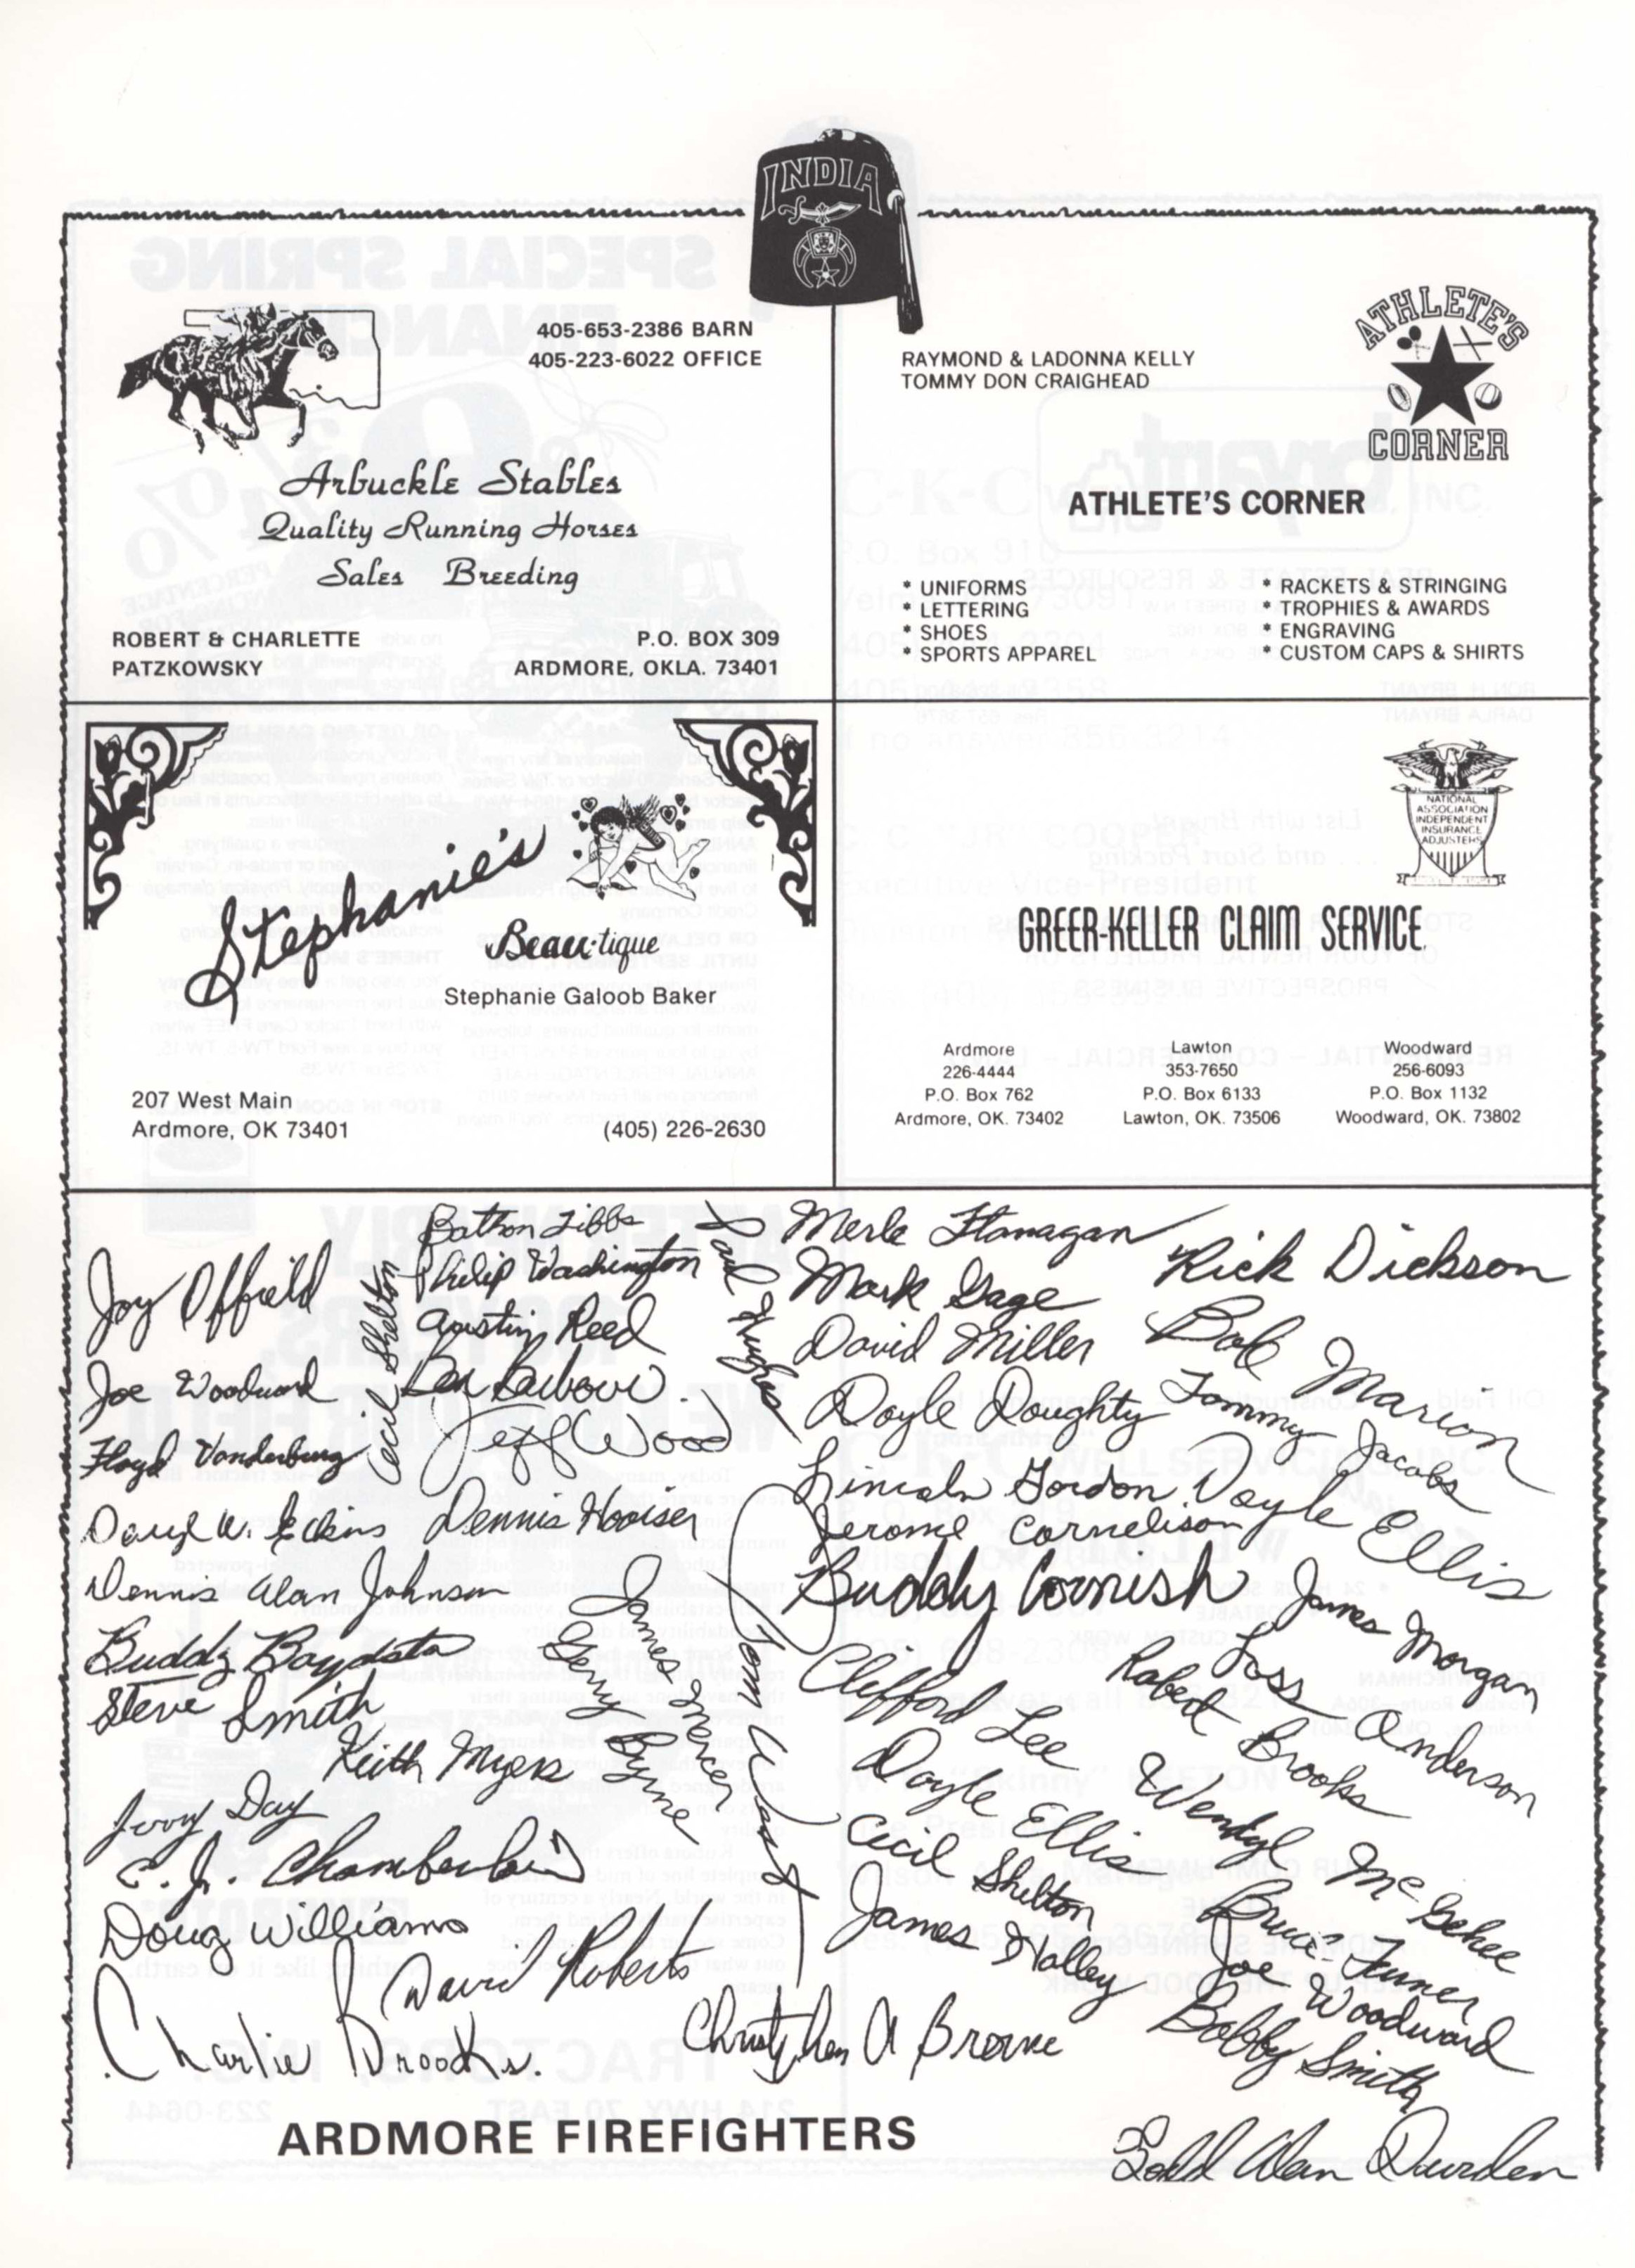 INDIA
405-653-2386 BARN
405-223-6022 OFFICE
Arbuckle Stables
Quality Running Horses
Sales Breeding
ROBERT & CHARLETTE
PATZKOWSKY
P.O. BOX 309
ARDMORE, OKLA. 73401
RAYMOND & LADONNA KELLY
TOMMY DON CRAIGHEAD
ATHLETE'S
CORNER
ATHLETE'S CORNER
* UNIFORMS
* LETTERING
* SHOES
* SPORTS APPAREL
* RACKETS & STRINGING
* TROPHIES & AWARDS
* ENGRAVING
* CUSTOM CAPS & SHIRTS
Stephanie's
Beau-tique
Stephanie Galoob Baker
207 West Main
Ardmore, OK 73401
(405) 226-2630
NATIONAL
ASSOCIATION
INDEPENDENT
INSURANCE
ADJUSTERS
GREER-KELLER CLAIM SERVICE.
Ardmore
226-4444
P.O. Box 762
Ardmore, OK. 73402
Lawton
353-7650
P.O. Box 6133
Lawton, OK. 73506
Woodward
256-6093
P.O. Box 1132
Woodward, OK. 73802
Joy Offield
Joe Woodward
Floyd Vanderburg
Daryl W.
Dennis Alan Johnson
Buddy
Steve Smith
Keith Myers
Jerry Day
C. J. Chamberlain
Doug Williams
David Roberts
Charlie Brooks.
Cecil Shelton
Philip Washington
Austin Reed
Ben Barbour
Jeff Wood
Dennis Hooiser
James Spencer
Gerry Byrne
Paul Hughes
Tom
Merle Flanagan
Mark Gage
David Miller
Doyle Doughty
Lincoln Gordon
Jerome Cornelison
Buddy Cornish
Rick Dickson
Bob Marion
Tommy Jacobs
Doyle Ellis
James Morgan
Foss Anderson
Robert Brooks
Clifford Lee
Wendyl McGehee
Doyle Ellis
Cecil Shelton
Bruce Turner
James Holley
Joe Woodward
Bobby Smith
Christopher A Browne
Todd Alan Durden
ARDMORE FIREFIGHTERS